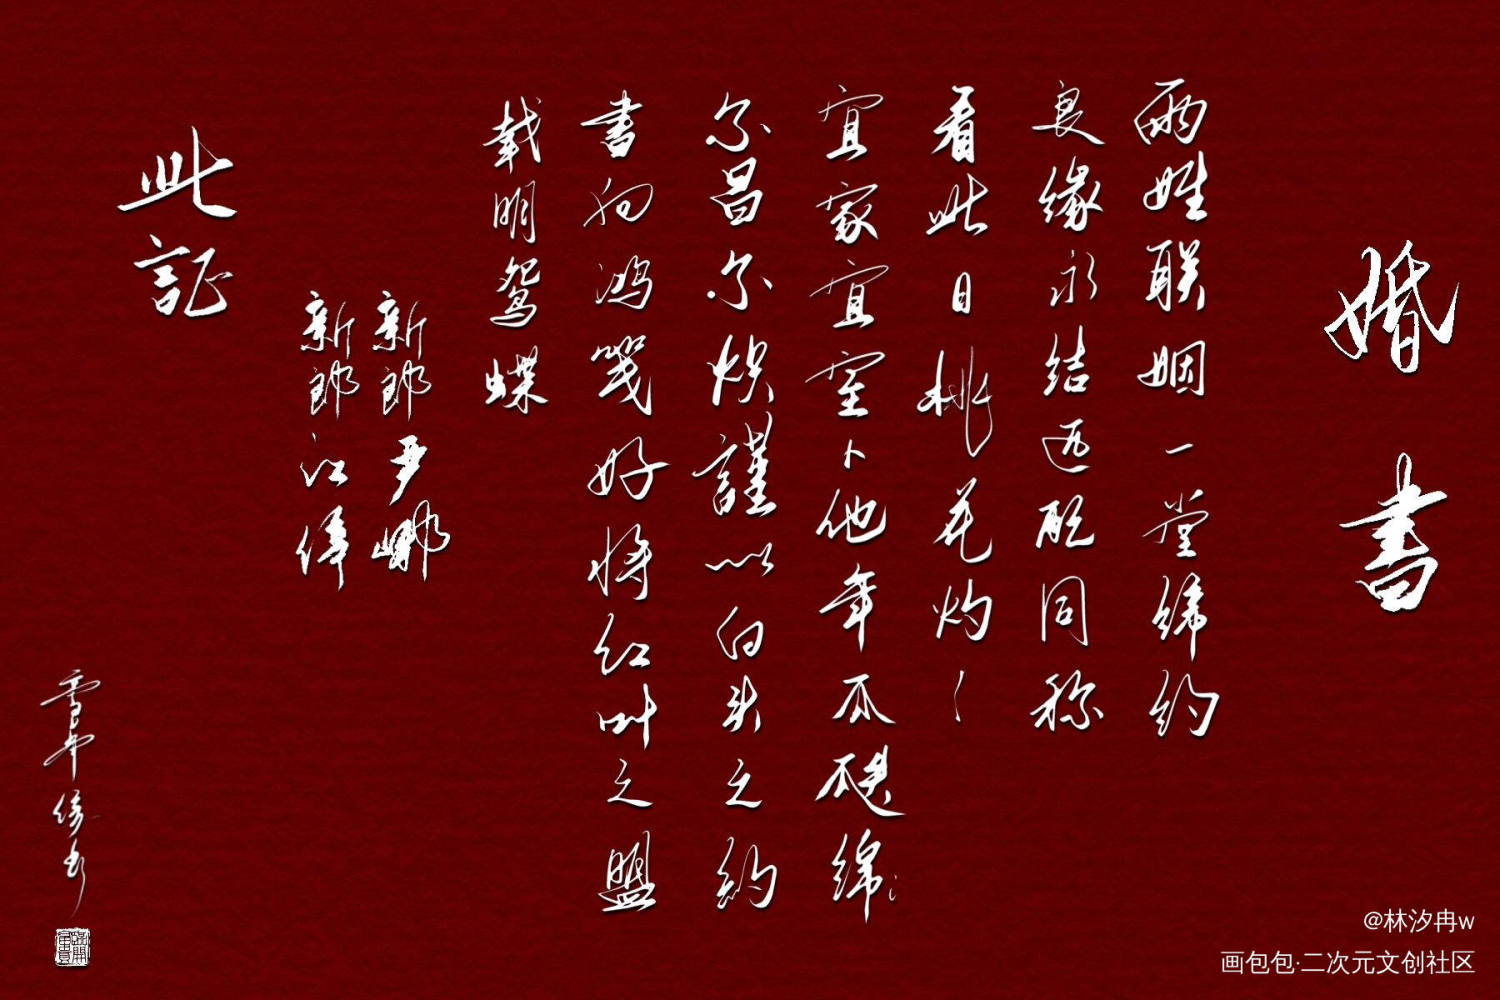 婚書
兩姓联姻一堂締约
良缘永结匹配同称
看此日桃花灼灼
宜家宜室卜他年瓜瓞绵绵
尔昌尔炽謹以白头之约
書向鸿笺好将红叶之盟
载明鸳蝶
新郎尹娜
新郎江偉
此証
@林汐冉w
画包包·二次元文创社区